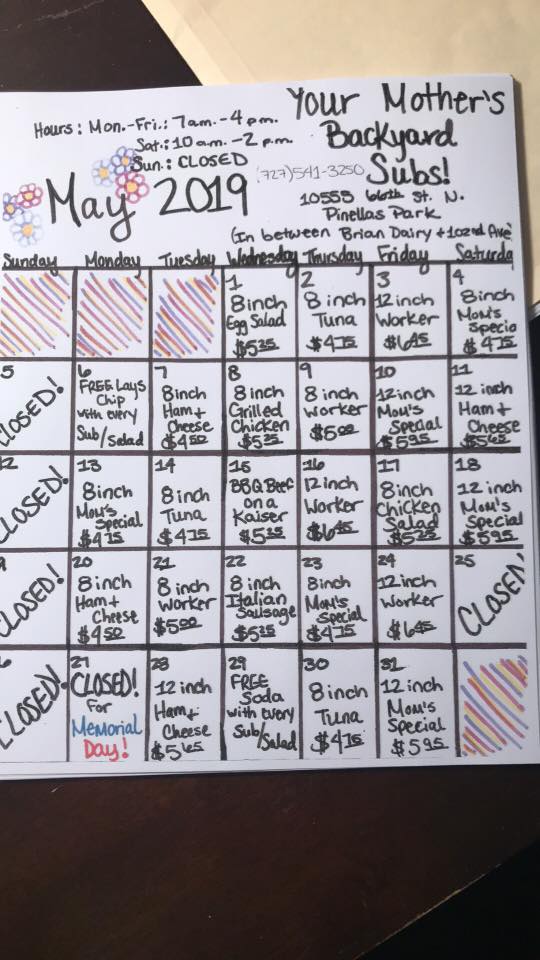 Your Mother's
Backyard
Subs!
Hours: Mon.-Fri.: 7am.-4 pm.
Sat.: 10 am. -2 p.m.
Sun.: CLOSED
(727)541-3250
May 2019
10555 66th St. N.
Pinellas Park
(In between Brian Dairy + 102nd Ave
Sunday Monday Tuesday Wednesday Thursday Friday Saturda
1
8 inch
Egg Salad
$5.25
2
8 inch
Tuna
$4.75
3
12 inch
Worker
$6.45
4
8 inch
Mom's
Specia
$4.75
5
CLOSED!
6
FREE Lays
Chip
with every
Sub/Salad
7
8 inch
Ham +
Cheese
$4.50
8
8 inch
Grilled
Chicken
$5.25
9
8 inch
Worker
$5.00
10
12 inch
Mom's
Special
$5.95
11
12 inch
Ham +
Cheese
$5.65
2
CLOSED!
13
8 inch
Mom's
Special
$4.75
14
8 inch
Tuna
$4.75
15
BBQ Beef
on a
Kaiser
$5.25
16
12 inch
Worker
$6.45
17
8 inch
Chicken
Salad
$5.25
18
12 inch
Mom's
Special
$5.95
9
CLOSED!
20
8 inch
Ham +
Cheese
$4.50
21
8 inch
Worker
$5.00
22
8 inch
Italian
Sausage
$5.25
23
8 inch
Mom's
Special
$4.75
24
12 inch
Worker
$6.45
25
CLOSED!
6
CLOSED!
27
CLOSED!
For
Memorial
Day!
28
12 inch
Ham +
Cheese
$5.65
29
FREE
Soda
with every
Sub/Salad
30
8 inch
Tuna
$4.75
31
12 inch
Mom's
Special
$5.95